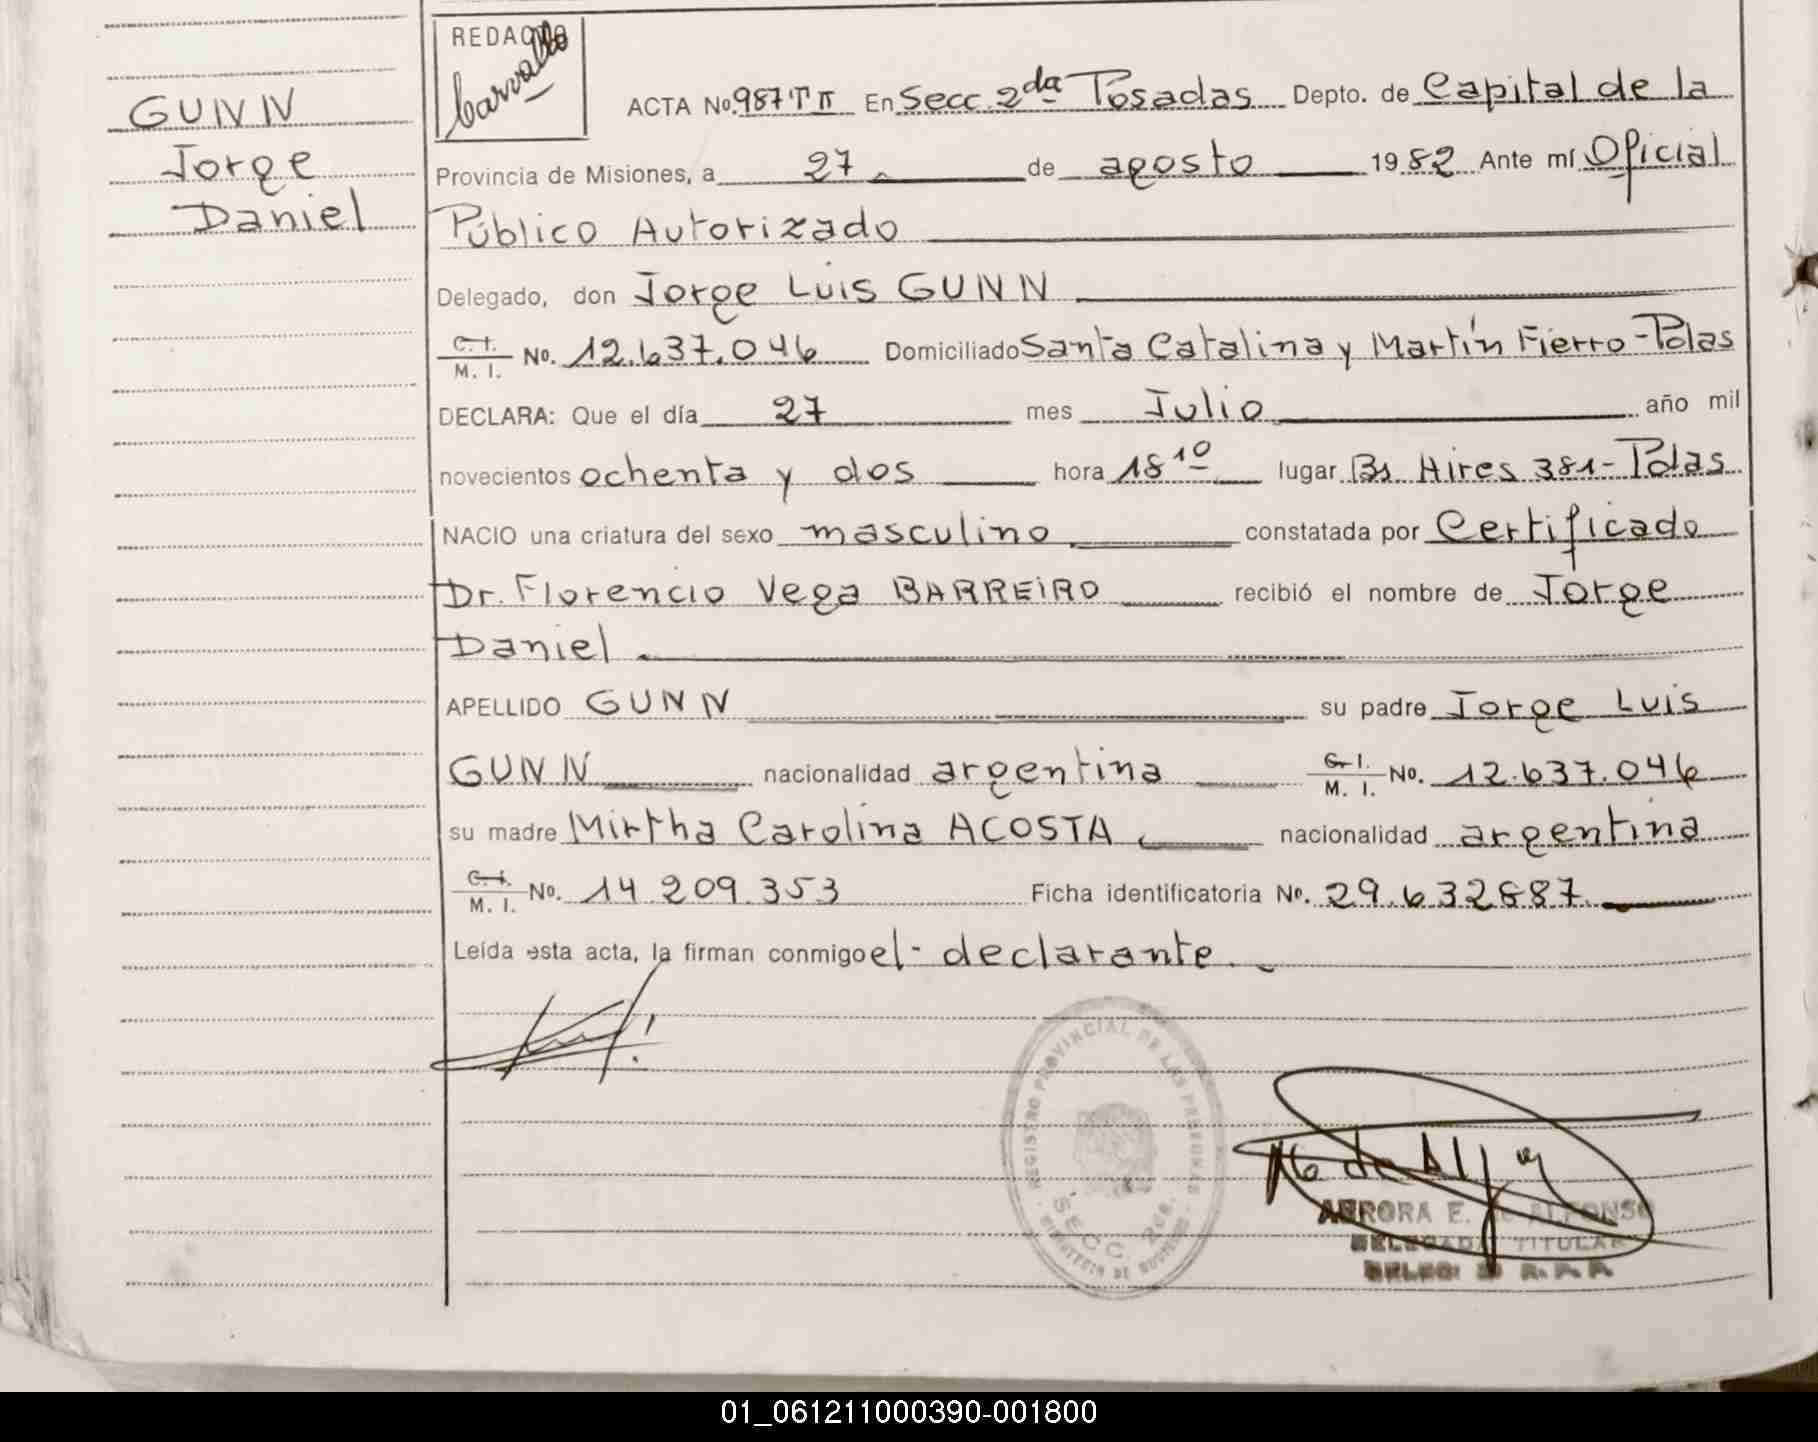 GUNN
Jorge
Daniel
REDACTO
Carvallo
ACTA No. 987 T II En Secc. 2da Posadas Depto. de Capital de la
Provincia de Misiones, a 27 de agosto 1982 Ante mí Oficial
Público Autorizado
Delegado, don Jorge Luis GUNN
C. I. / M. I. No. 12.637.046 Domiciliado Santa Catalina y Martín Fierro - Pdas
DECLARA: Que el día 27 mes Julio año mil
novecientos ochenta y dos hora 18 10 lugar Bs Aires 381 - Pdas
NACIO una criatura del sexo masculino constatada por Certificado
Dr. Florencio Vega BARREIRO recibió el nombre de Jorge
Daniel
APELLIDO GUNN su padre Jorge Luis
GUNN nacionalidad argentina C. I. / M. I. No. 12.637.046
su madre Mirtha Carolina ACOSTA nacionalidad argentina
C. I. / M. I. No. 14.209.353 Ficha identificatoria No. 29.632887
Leída esta acta, la firman conmigo el - declarante.
REGISTRO PROVINCIAL DE LAS PERSONAS
SECC. 2da.
MINISTERIO DE GOBIERNO
AURORA E. de ALFONSO
DELEGADA TITULAR
R. P. P.
01_061211000390-001800